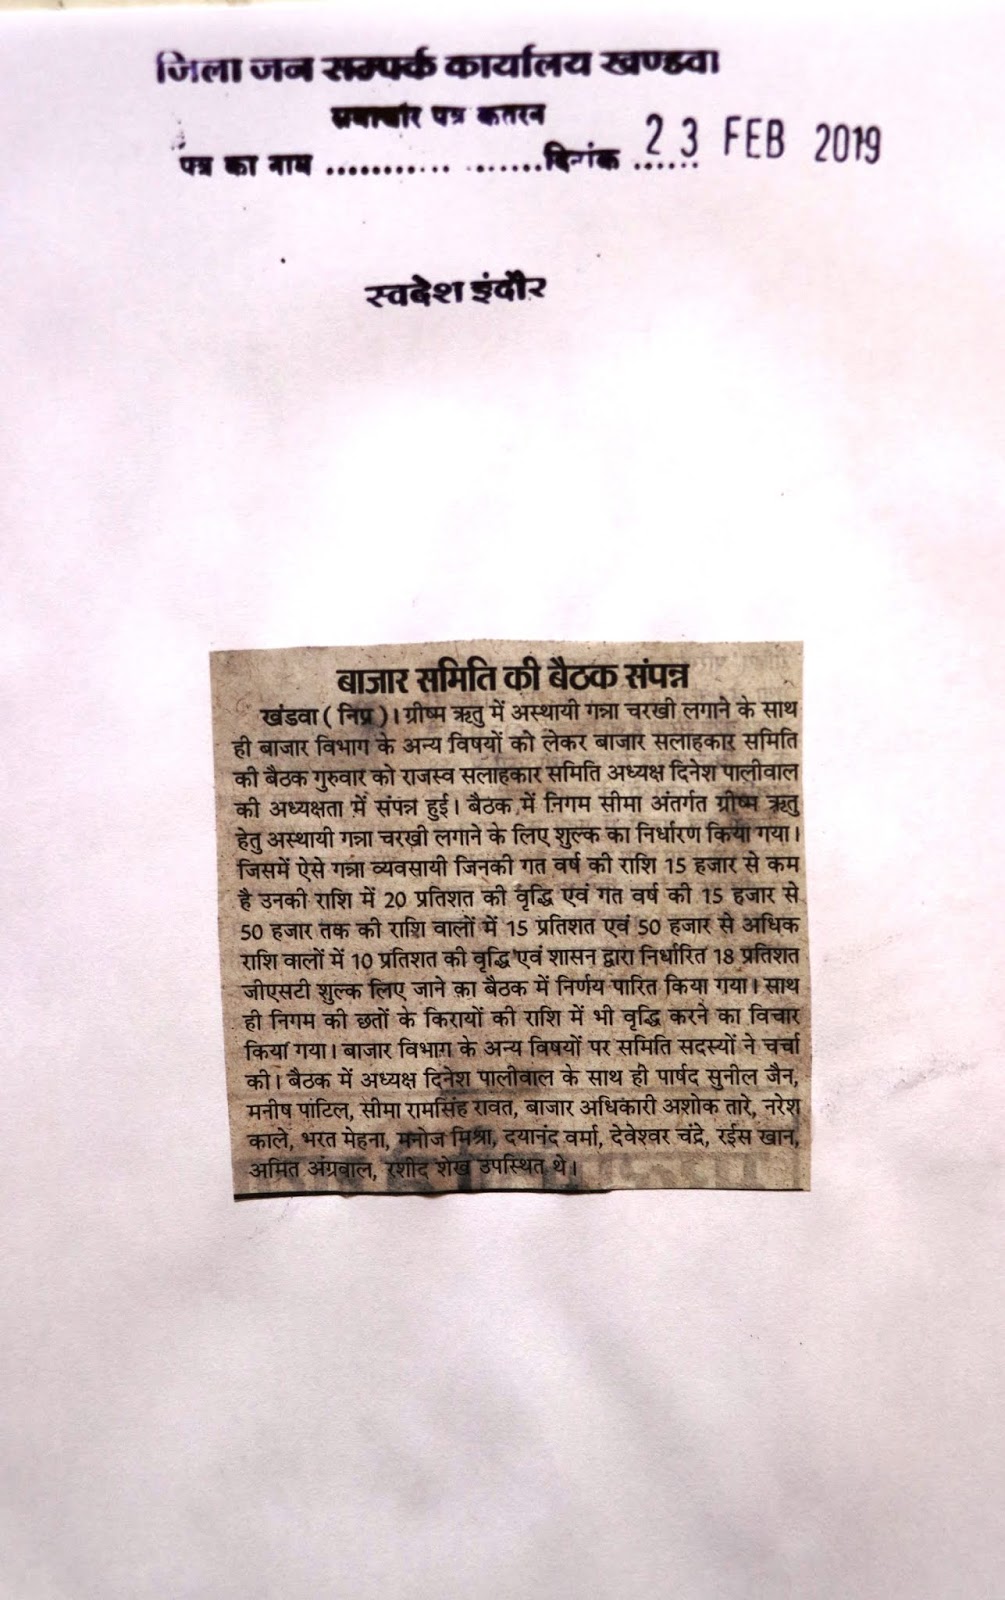 जिला जन सम्पर्क कार्यालय खण्डवा
समाचार पत्र कतरन
पत्र का नाम .................. दिनांक ...... 23 FEB 2019
स्वदेश इंदौर
बाजार समिति की बैठक संपन्न
खंडवा ( निप्र )। ग्रीष्म ऋतु में अस्थायी गन्ना चरखी लगाने के साथ
ही बाजार विभाग के अन्य विषयों को लेकर बाजार सलाहकार समिति
की बैठक गुरुवार को राजस्व सलाहकार समिति अध्यक्ष दिनेश पालीवाल
की अध्यक्षता में संपन्न हुई। बैठक में निगम सीमा अंतर्गत ग्रीष्म ऋतु
हेतु अस्थायी गन्ना चरखी लगाने के लिए शुल्क का निर्धारण किया गया।
जिसमें ऐसे गन्ना व्यवसायी जिनकी गत वर्ष की राशि 15 हजार से कम
है उनकी राशि में 20 प्रतिशत की वृद्धि एवं गत वर्ष की 15 हजार से
50 हजार तक की राशि वालों में 15 प्रतिशत एवं 50 हजार से अधिक
राशि वालों में 10 प्रतिशत की वृद्धि एवं शासन द्वारा निर्धारित 18 प्रतिशत
जीएसटी शुल्क लिए जाने का बैठक में निर्णय पारित किया गया। साथ
ही निगम की छतों के किरायों की राशि में भी वृद्धि करने का विचार
किया गया। बाजार विभाग के अन्य विषयों पर समिति सदस्यों ने चर्चा
की। बैठक में अध्यक्ष दिनेश पालीवाल के साथ ही पार्षद सुनील जैन,
मनीष पाटिल, सीमा रामसिंह रावत, बाजार अधिकारी अशोक तारे, नरेश
काले, भरत मेहना, मनोज मिश्रा, दयानंद वर्मा, देवेश्वर चंद्रे, रईस खान,
अमित अग्रवाल, रशीद शेख उपस्थित थे।